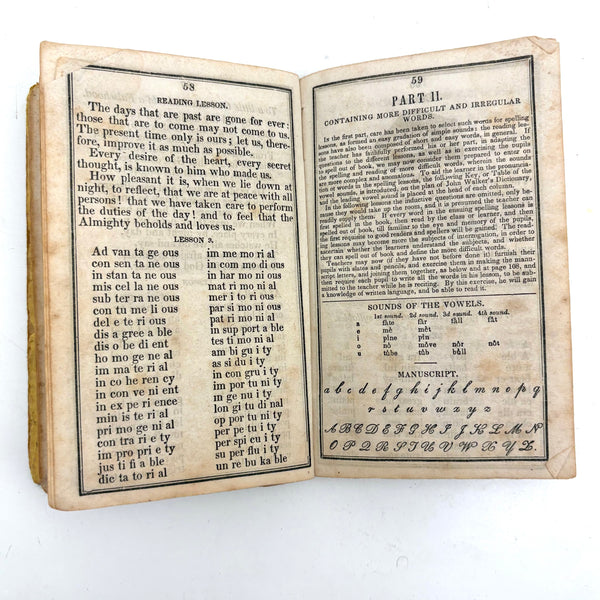 58
READING LESSON.
The days that are past are gone for ever:
those that are to come may not come to us.
The present time only is ours; let us, there-
fore, improve it as much as possible.
Every desire of the heart, every secret
thought, is known to him who made us.
How pleasant it is, when we lie down at
night, to reflect, that we are at peace with all
persons! that we have taken care to perform
the duties of the day! and to feel that the
Almighty beholds and loves us.
LESSON 3.
Ad van ta ge ous
con sen ta ne ous
in stan ta ne ous
mis cel la ne ous
sub ter ra ne ous
con tu me li ous
del e te ri ous
dis a gree a ble
dis o be di ent
ho mo ge ne al
im ma te ri al
in co he ren cy
in con ve ni ent
in ex pe ri ence
min is te ri al
pri mo ge ni al
con tra ri e ty
im pro pri e ty
jus ti fi a ble
dic ta to ri al
im me mo ri al
in com mo di ous
in har mo ni ous
mat ri mo ni al
mer i to ri ous
par si mo ni ous
pat ri mo ni al
in sup port a ble
tes ti mo ni al
am bi gu i ty
as si du i ty
in con gru i ty
im por tu ni ty
in ge nu i ty
lon gi tu di nal
op por tu ni ty
per pe tu i ty
per spi cu i ty
su per flu i ty
un re bu ka ble
59
PART II.
CONTAINING MORE DIFFICULT AND IRREGULAR
WORDS.
In the first part, care has been taken to select such words for spelling
lessons, as formed an easy gradation of simple sounds: the reading les-
sons have also been composed of short and easy words, in general. If
the teacher has faithfully performed his or her part, in adapting the
questions to the different lessons, as well as in exercising the pupils
to spell out of book, we may now consider them prepared to enter on
the spelling and reading of more difficult words, wherein the sounds
are more complex and anomalous. To aid the learner in the pronuncia-
tion of words in the spelling lessons, the following Key, or Table of the
vowel sounds, is introduced, on the plan of John Walker's Dictionary,
and the leading vowel sound is placed at the head of each column.
In the following lessons the inductive questions are omitted, only be-
cause they would take up the room, and it is presumed the teacher can
readily supply them. If every word in the ensuing spelling lessons is
first spelled in the book, then read by the class or learner, and then
spelled out of book, till familiar to the eye and memory of the pupils,
the first requisite to good readers and spellers will be gained. The read-
ing lessons may become more the subjects of interrogation, in order to
ascertain whether the learners understand the subjects, and whether
they can spell out of book and define the more difficult words.
Teachers may now (if they have not before done it) furnish their
pupils with slates and pencils, and exercise them in making the manu-
script letters, and joining them together, as below and at page 108, and
then require each pupil to write all the words in his lesson, to be sub-
mitted to the teacher while he is reciting. By this exercise, he will gain
a knowledge of written language, and be able to read it.
SOUNDS OF THE VOWELS.
1st sound. 2d sound. 3d sound. 4th sound.
a fāte fär fâll făt
e mē mĕt
i pīne pĭn
o nō möve nôr nŏt
u tūbe tŭb bûll
MANUSCRIPT.
a b c d e f g h i j k l m n o p q
r s t u v w x y z
A B C D E F G H I J K L M N
O P Q R S T U V W X Y Z.